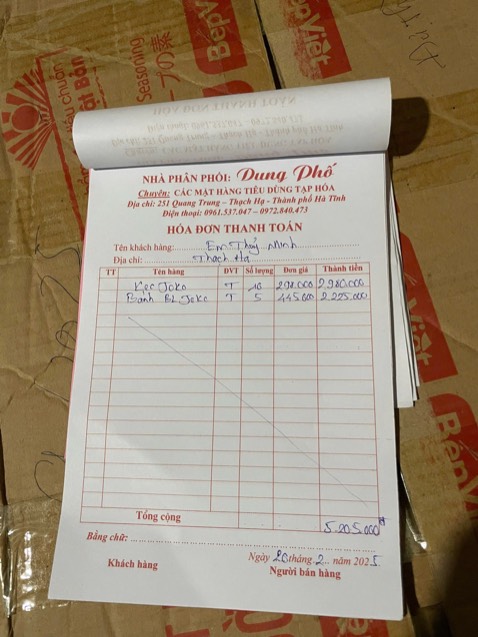 Seasoning
の素
BếpViệt
NHÀ PHÂN PHỐI: Dung Phố
Chuyên: CÁC MẶT HÀNG TIÊU DÙNG TẠP HÓA
Địa chỉ: 251 Quang Trung - Thạch Hạ - Thành phố Hà Tĩnh
Điện thoại: 0961.537.047 - 0972.840.473
HÓA ĐƠN THANH TOÁN
Tên khách hàng: Em Thủy Minh
Địa chỉ: Thạch Hạ
TT Tên hàng ĐVT Số lượng Đơn giá Thành tiền
Kẹo Joko T 10 298.000 2.980.000
Bánh BL Joko T 5 445.000 2.225.000
Tổng cộng 5.205.000đ
Bằng chữ:
Ngày 26 tháng 2 năm 2025
Khách hàng Người bán hàng
Việt
BếpViệt